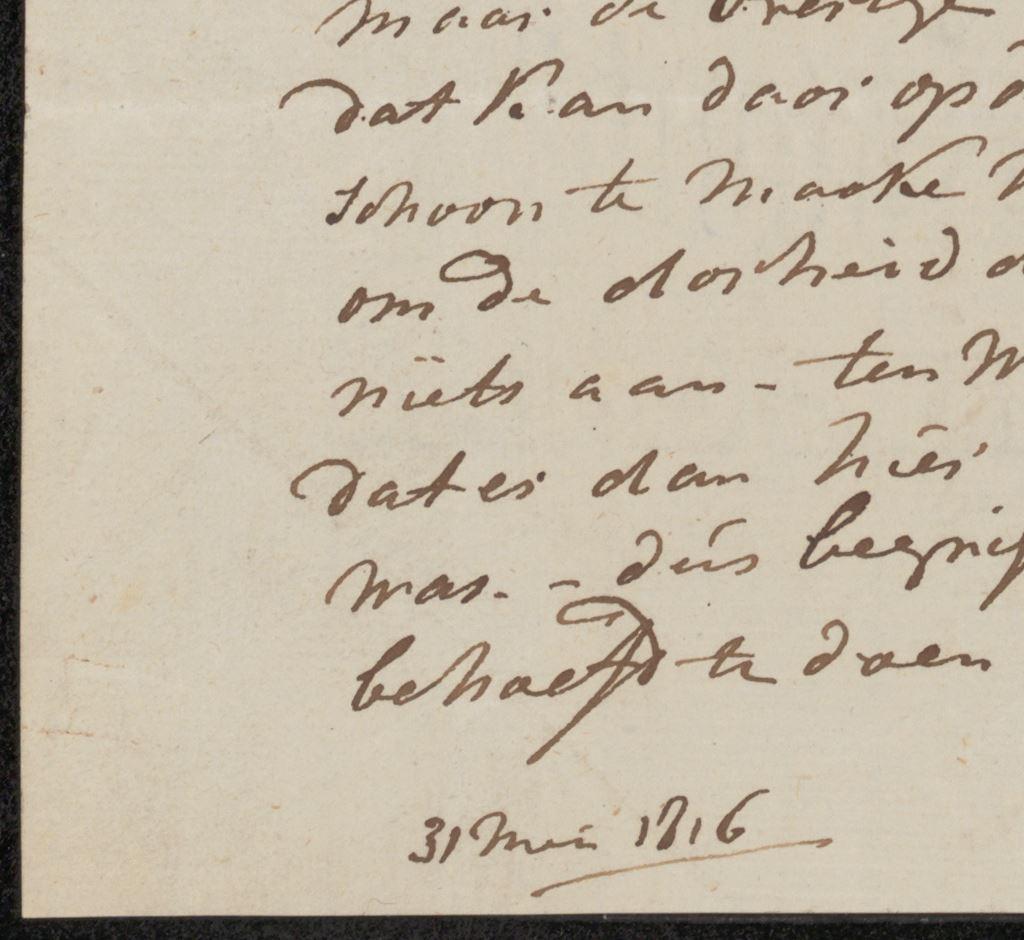 maar de
dat kan daar op
schoon te maake
om de dorheid
niets aan - ten
dat er dan hier
was. - dus
behoefd te doen
31 Mei 1816